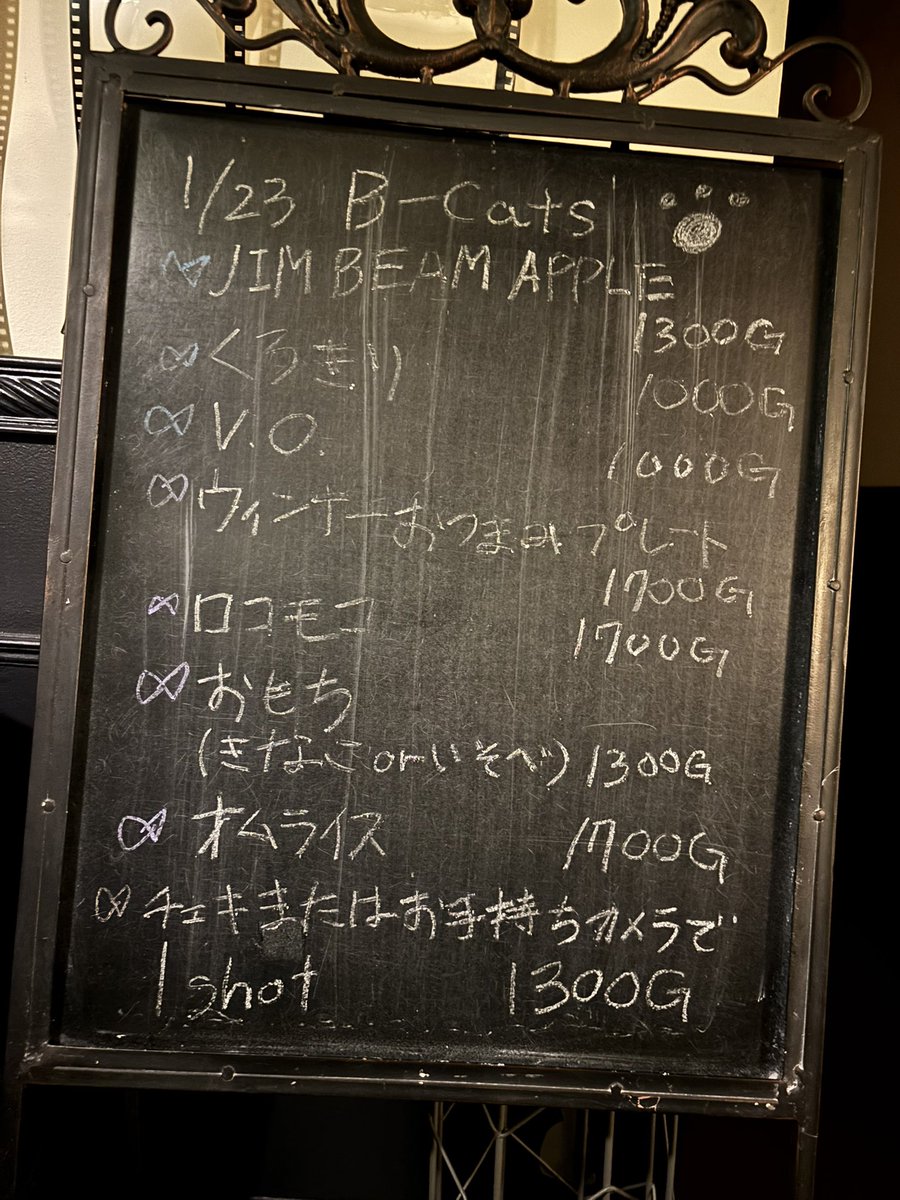 1/23 B-Cats
JIM BEAM APPLE
1300G
くろきり
1000G
V.O.
1000G
ウィンナーおつまみプレート
1700G
ロコモコ
1700G
おもち
(きなこorいそべ) 1300G
オムライス 1700G
チェキまたはお手持ちカメラで
1 shot 1300G